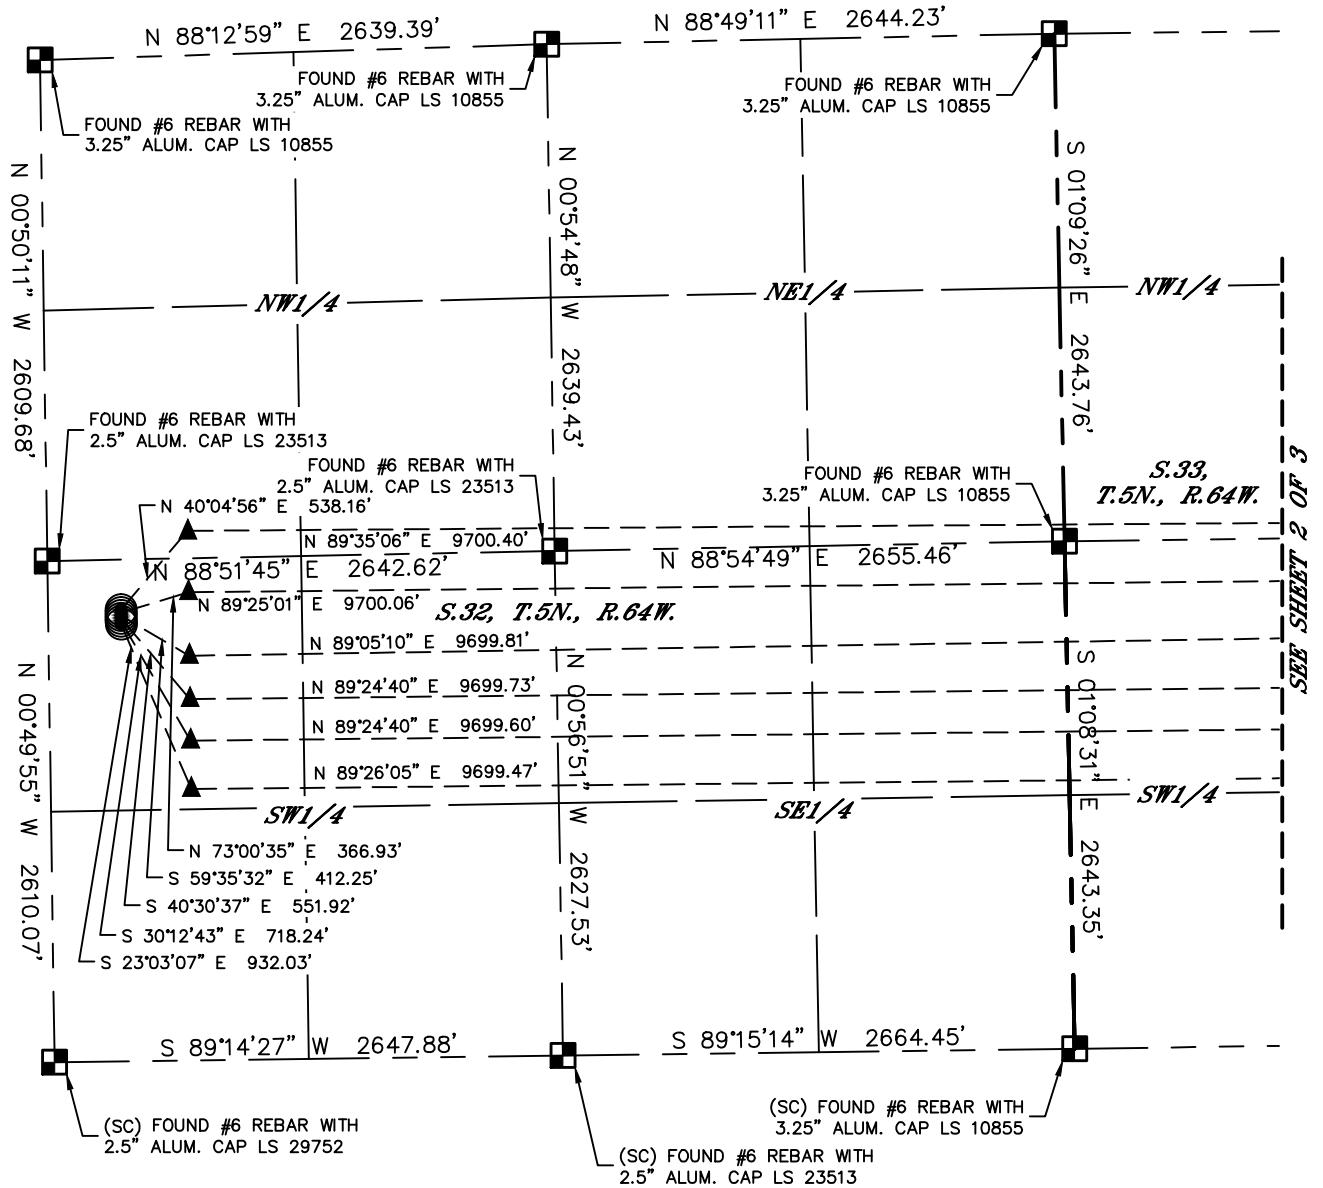 N 88°12'59" E 2639.39'
N 88°49'11" E 2644.23'
FOUND #6 REBAR WITH
3.25" ALUM. CAP LS 10855
FOUND #6 REBAR WITH
3.25" ALUM. CAP LS 10855
FOUND #6 REBAR WITH
3.25" ALUM. CAP LS 10855
N 00°50'11" W 2609.68'
N 00°54'48" W 2639.43'
S 01°09'26" E 2643.76'
NW1/4
NE1/4
NW1/4
FOUND #6 REBAR WITH
2.5" ALUM. CAP LS 23513
FOUND #6 REBAR WITH
2.5" ALUM. CAP LS 23513
FOUND #6 REBAR WITH
3.25" ALUM. CAP LS 10855
S.33,
T.5N., R.64W.
SEE SHEET 2 OF 3
N 40°04'56" E 538.16'
N 89°35'06" E 9700.40'
N 88°51'45" E 2642.62'
N 88°54'49" E 2655.46'
N 89°25'01" E 9700.06'
S.32, T.5N., R.64W.
N 89°05'10" E 9699.81'
N 89°24'40" E 9699.73'
N 89°24'40" E 9699.60'
N 89°26'05" E 9699.47'
N 00°49'55" W 2610.07'
N 00°56'51" W 2627.53'
S 01°08'31" E 2643.35'
SW1/4
SE1/4
SW1/4
N 73°00'35" E 366.93'
S 59°35'32" E 412.25'
S 40°30'37" E 551.92'
S 30°12'43" E 718.24'
S 23°03'07" E 932.03'
S 89°14'27" W 2647.88'
S 89°15'14" W 2664.45'
(SC) FOUND #6 REBAR WITH
2.5" ALUM. CAP LS 29752
(SC) FOUND #6 REBAR WITH
3.25" ALUM. CAP LS 10855
(SC) FOUND #6 REBAR WITH
2.5" ALUM. CAP LS 23513